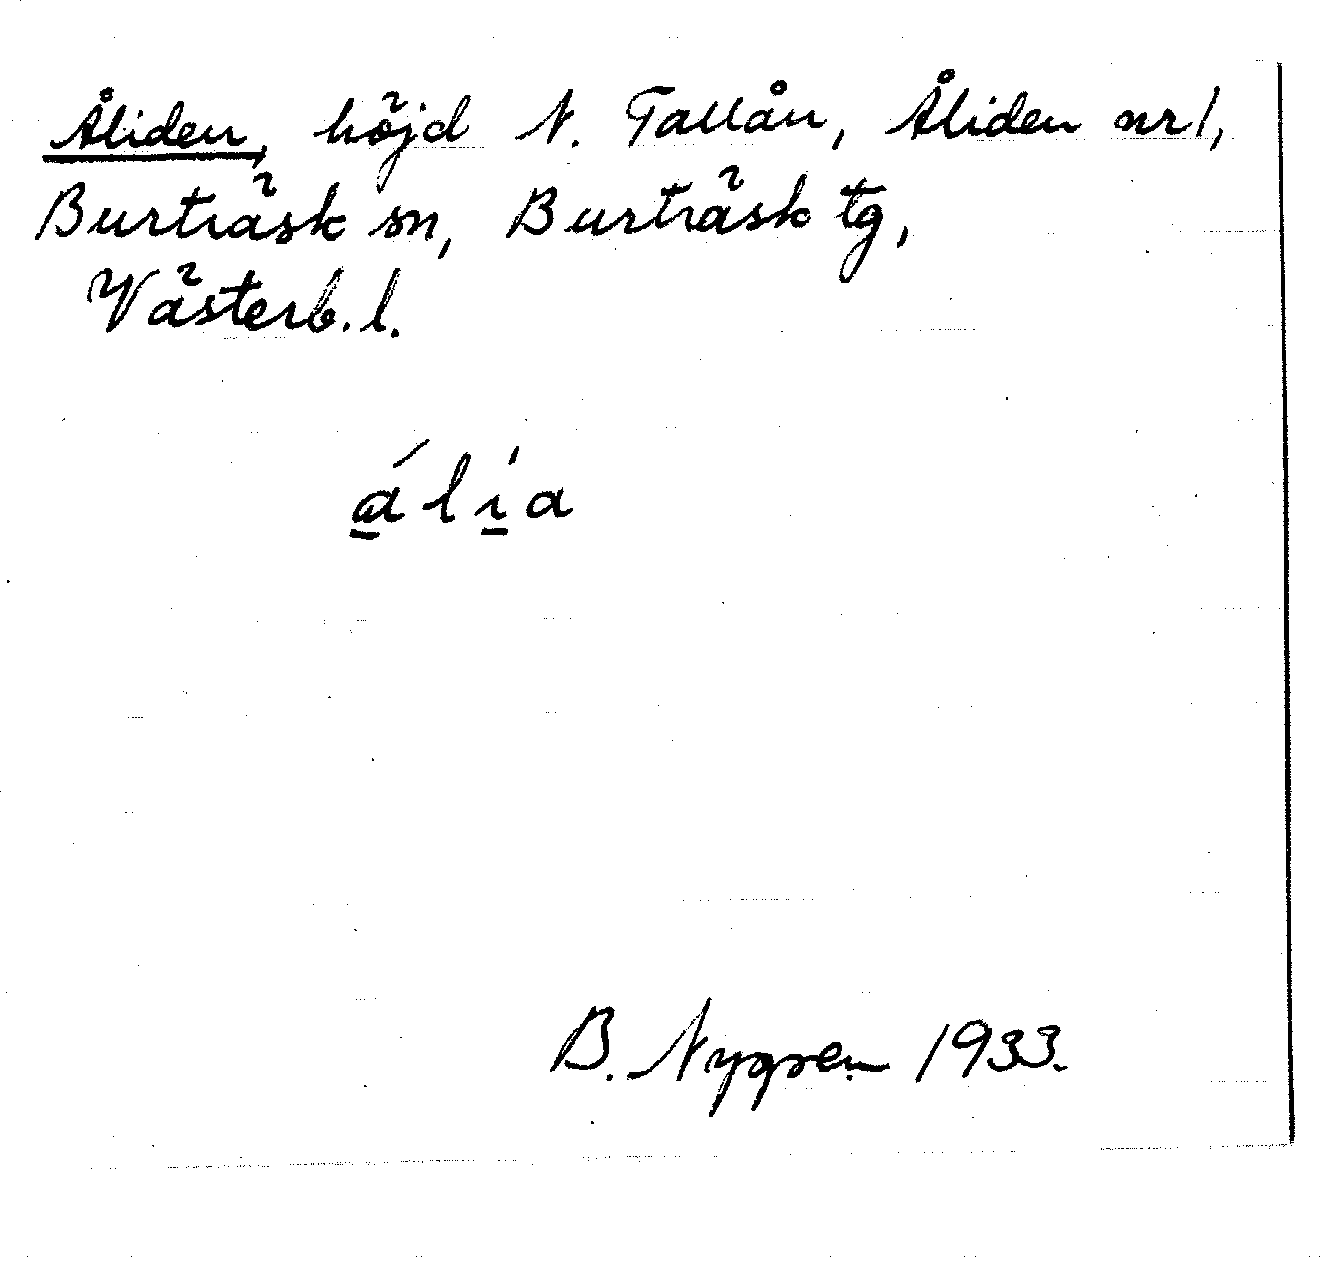 Åliden, höjd N. Tallån, Åliden nr 1,
Burträsk sn, Burträsk tg,
Västerb. l.
á̱ l í̱ a
B. Nygren 1933.